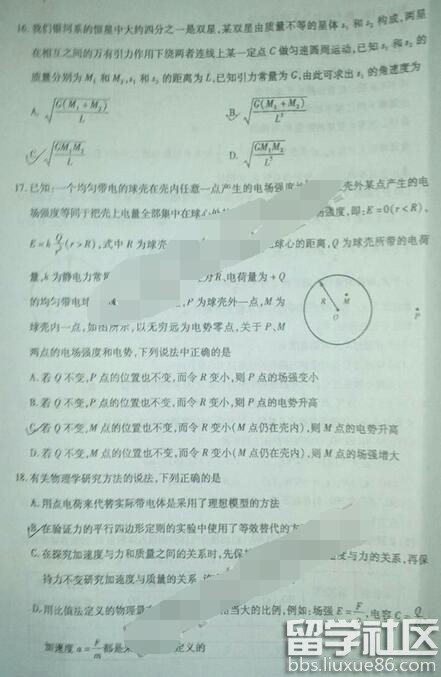 16. 我们银河系的恒星中大约四分之一是双星,某双星由质量不等的星体 s₁ 和 s₂ 构成,两星
在相互之间的万有引力作用下绕两者连线上某一定点 C 做匀速圆周运动,已知 s₁ 和 s₂ 的
质量分别为 M₁ 和 M₂,s₁ 和 s₂ 的距离为 L,已知引力常量为 G,由此可求出 s₁ 的角速度为
A. √(G(M₁+M₂)/L) B. √(G(M₁+M₂)/L³)
C. √(GM₁M₂/L) D. √(GM₁M₂/L³)
17. 已知:一个均匀带电的球壳在壳内任意一点产生的电场强度 壳外某点产生的电
场强度等同于把壳上电量全部集中在球心 强度,即:E=0(r<R),
E=k Q/r²(r>R),式中 R 为球壳 球心的距离,Q 为球壳所带的电荷
量,k 为静电力常 为 R、电荷量为+Q
的均匀带电球 P 为球壳外一点,M 为
球壳内一点,如图所示,以无穷远为电势零点,关于 P、M
两点的电场强度和电势,下列说法中正确的是
R
M
O
P
A. 若 Q 不变,P 点的位置也不变,而令 R 变小,则 P 点的场强变小
B. 若 Q 不变,P 点的位置也不变,而令 R 变小,则 P 点的电势升高
C. 若 Q 不变,M 点的位置也不变,而令 R 变小(M 点仍在壳内),则 M 点的电势升高
D. 若 Q 不变,M 点的位置也不变,而令 R 变小(M 点仍在壳内),则 M 点的场强增大
18. 有关物理学研究方法的说法,下列正确的是
A. 用点电荷来代替实际带电体是采用了理想模型的方法
B. 在验证力的平行四边形定则的实验中使用了等效替代的方
C. 在探究加速度与力和质量之间的关系时,先保 度与力的关系,再保
持力不变研究加速度与质量的关系
D. 用比值法定义的物理量 相当大的比例,例如:场强 E=F/q,电容 C=Q
加速度 a=F/m 都是采 定义的
留学社区
bbs.liuxue86.com